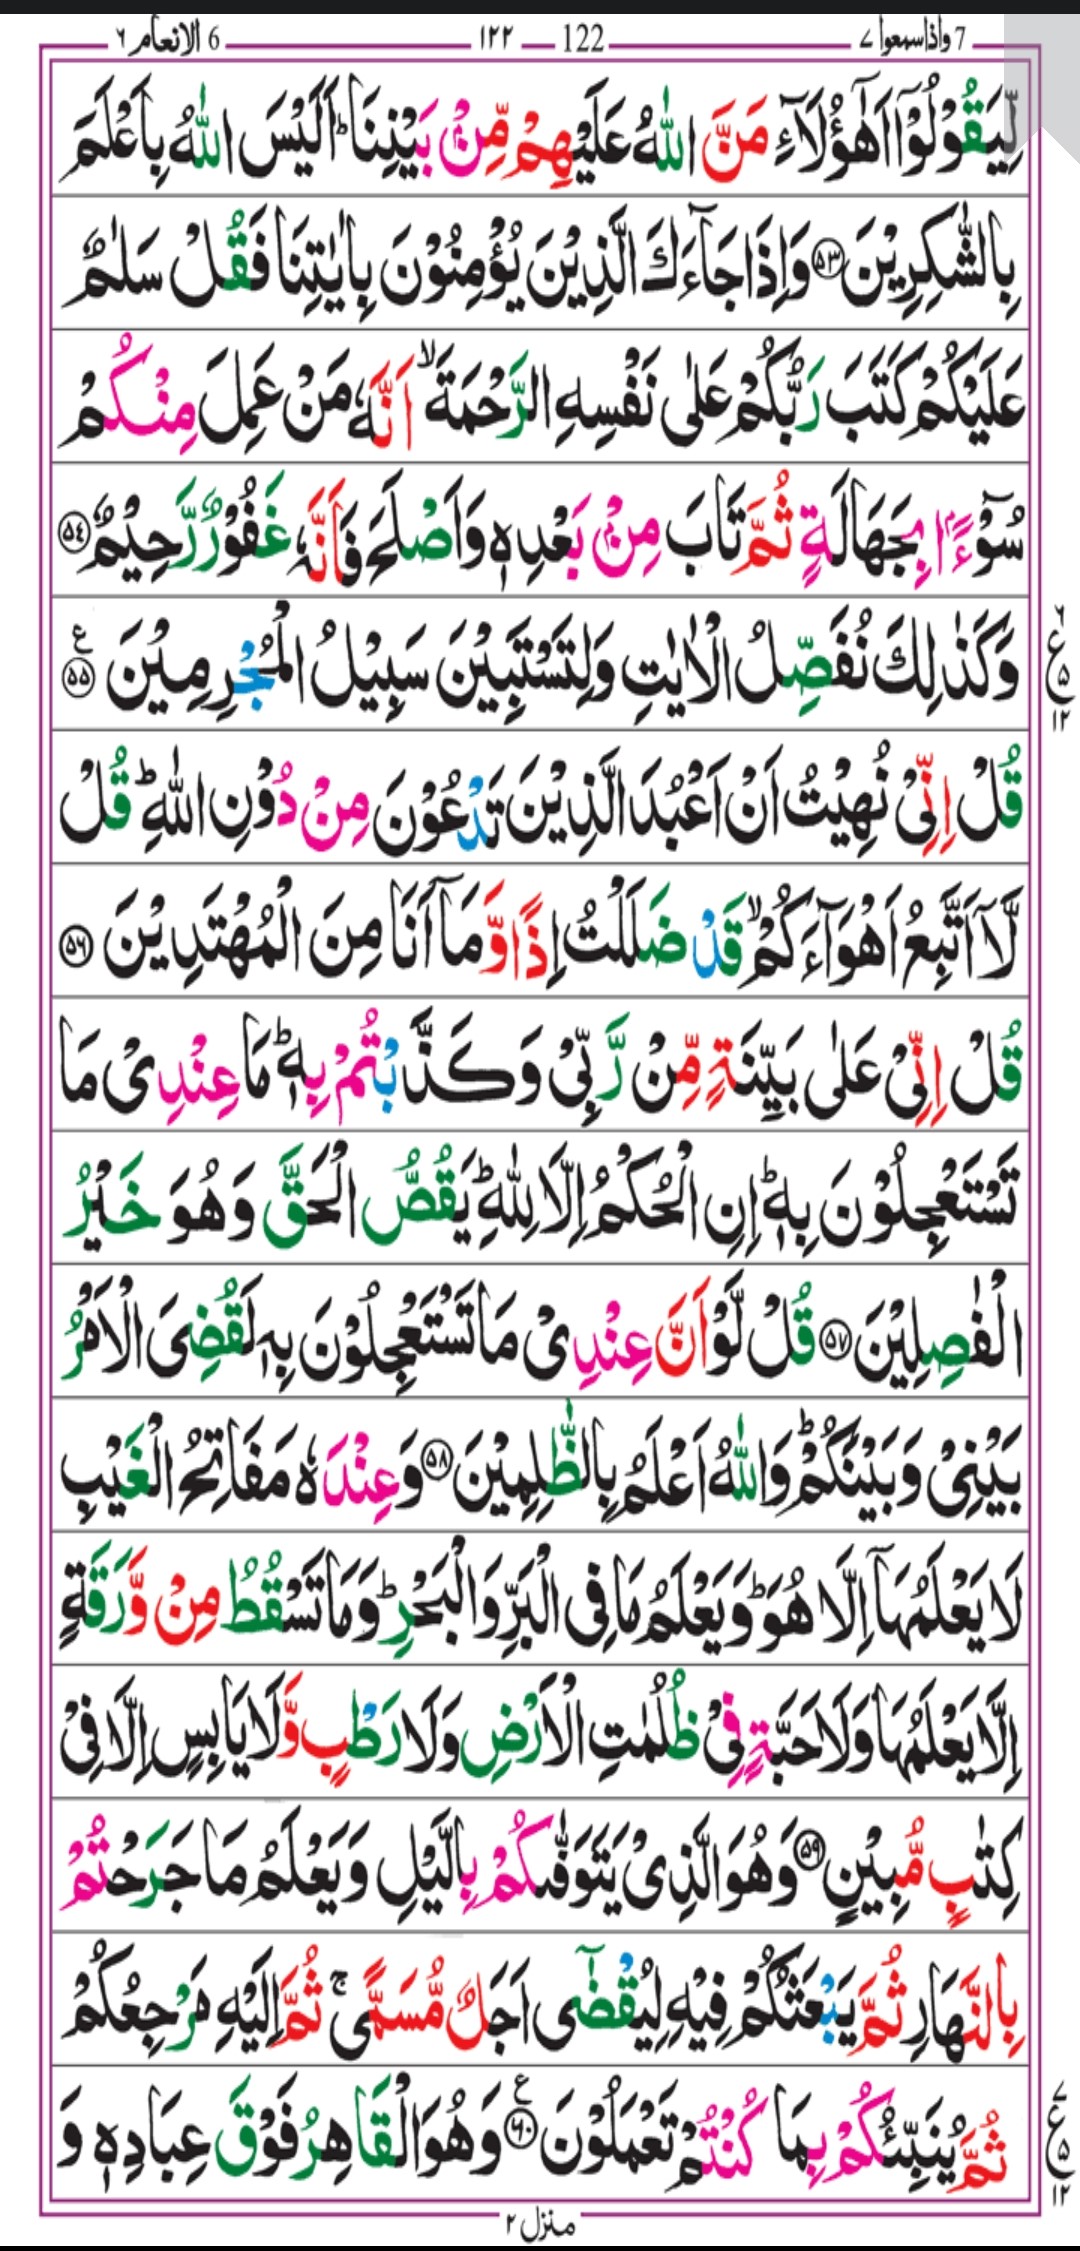 7 واذاسمعوا ٧ 122 ١٢٢ 6 الانعام ٦
لِّيَقُوْلُوْۤا اَهٰۤؤُلَآءِ مَنَّ اللّٰهُ عَلَيْهِمْ مِّنْۢ بَيْنِنَا ؕ اَلَيْسَ اللّٰهُ بِاَعْلَمَ
بِالشّٰكِرِيْنَ ﴿۵۳﴾ وَاِذَا جَآءَكَ الَّذِيْنَ يُؤْمِنُوْنَ بِاٰيٰتِنَا فَقُلْ سَلٰمٌ
عَلَيْكُمْ كَتَبَ رَبُّكُمْ عَلٰى نَفْسِهِ الرَّحْمَةَ ۙ اَنَّهٗ مَنْ عَمِلَ مِنْكُمْ
سُوْٓءًۢا بِجَهَالَةٍ ثُمَّ تَابَ مِنْۢ بَعْدِهٖ وَاَصْلَحَ فَاَنَّهٗ غَفُوْرٌ رَّحِيْمٌ ﴿۵۴﴾
وَكَذٰلِكَ نُفَصِّلُ الْاٰيٰتِ وَلِتَسْتَبِيْنَ سَبِيْلُ الْمُجْرِمِيْنَ ﴿۵۵﴾ ع
٦ ع ۵ ١٢
قُلْ اِنِّىْ نُهِيْتُ اَنْ اَعْبُدَ الَّذِيْنَ تَدْعُوْنَ مِنْ دُوْنِ اللّٰهِ ؕ قُلْ
لَّاۤ اَتَّبِعُ اَهْوَآءَكُمْ ۙ قَدْ ضَلَلْتُ اِذًا وَّمَاۤ اَنَا مِنَ الْمُهْتَدِيْنَ ﴿۵۶﴾
قُلْ اِنِّىْ عَلٰى بَيِّنَةٍ مِّنْ رَّبِّىْ وَكَذَّبْتُمْ بِهٖ ؕ مَا عِنْدِىْ مَا
تَسْتَعْجِلُوْنَ بِهٖ ؕ اِنِ الْحُكْمُ اِلَّا لِلّٰهِ ؕ يَقُصُّ الْحَقَّ وَهُوَ خَيْرُ
الْفٰصِلِيْنَ ﴿۵۷﴾ قُلْ لَّوْ اَنَّ عِنْدِىْ مَا تَسْتَعْجِلُوْنَ بِهٖ لَقُضِىَ الْاَمْرُ
بَيْنِىْ وَبَيْنَكُمْ ؕ وَاللّٰهُ اَعْلَمُ بِالظّٰلِمِيْنَ ﴿۵۸﴾ وَعِنْدَهٗ مَفَاتِحُ الْغَيْبِ
لَا يَعْلَمُهَاۤ اِلَّا هُوَ ؕ وَيَعْلَمُ مَا فِى الْبَرِّ وَالْبَحْرِ ؕ وَمَا تَسْقُطُ مِنْ وَّرَقَةٍ
اِلَّا يَعْلَمُهَا وَلَا حَبَّةٍ فِىْ ظُلُمٰتِ الْاَرْضِ وَلَا رَطْبٍ وَّلَا يَابِسٍ اِلَّا فِىْ
كِتٰبٍ مُّبِيْنٍ ﴿۵۹﴾ وَهُوَ الَّذِىْ يَتَوَفّٰٮكُمْ بِالَّيْلِ وَيَعْلَمُ مَا جَرَحْتُمْ
بِالنَّهَارِ ثُمَّ يَبْعَثُكُمْ فِيْهِ لِيُقْضٰٓى اَجَلٌ مُّسَمًّى ۚ ثُمَّ اِلَيْهِ مَرْجِعُكُمْ
ثُمَّ يُنَبِّئُكُمْ بِمَا كُنْتُمْ تَعْمَلُوْنَ ﴿۶۰﴾ ع وَهُوَ الْقَاهِرُ فَوْقَ عِبَادِهٖ وَ
٧ ع ۵ ١٢
منزل ٢